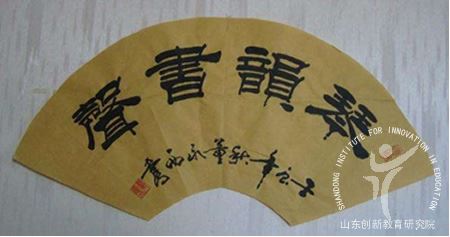 琴韻書聲
年秋董永書
SHANDONG INSTITUTE FOR INNOVATION IN EDUCATION
山东创新教育研究院